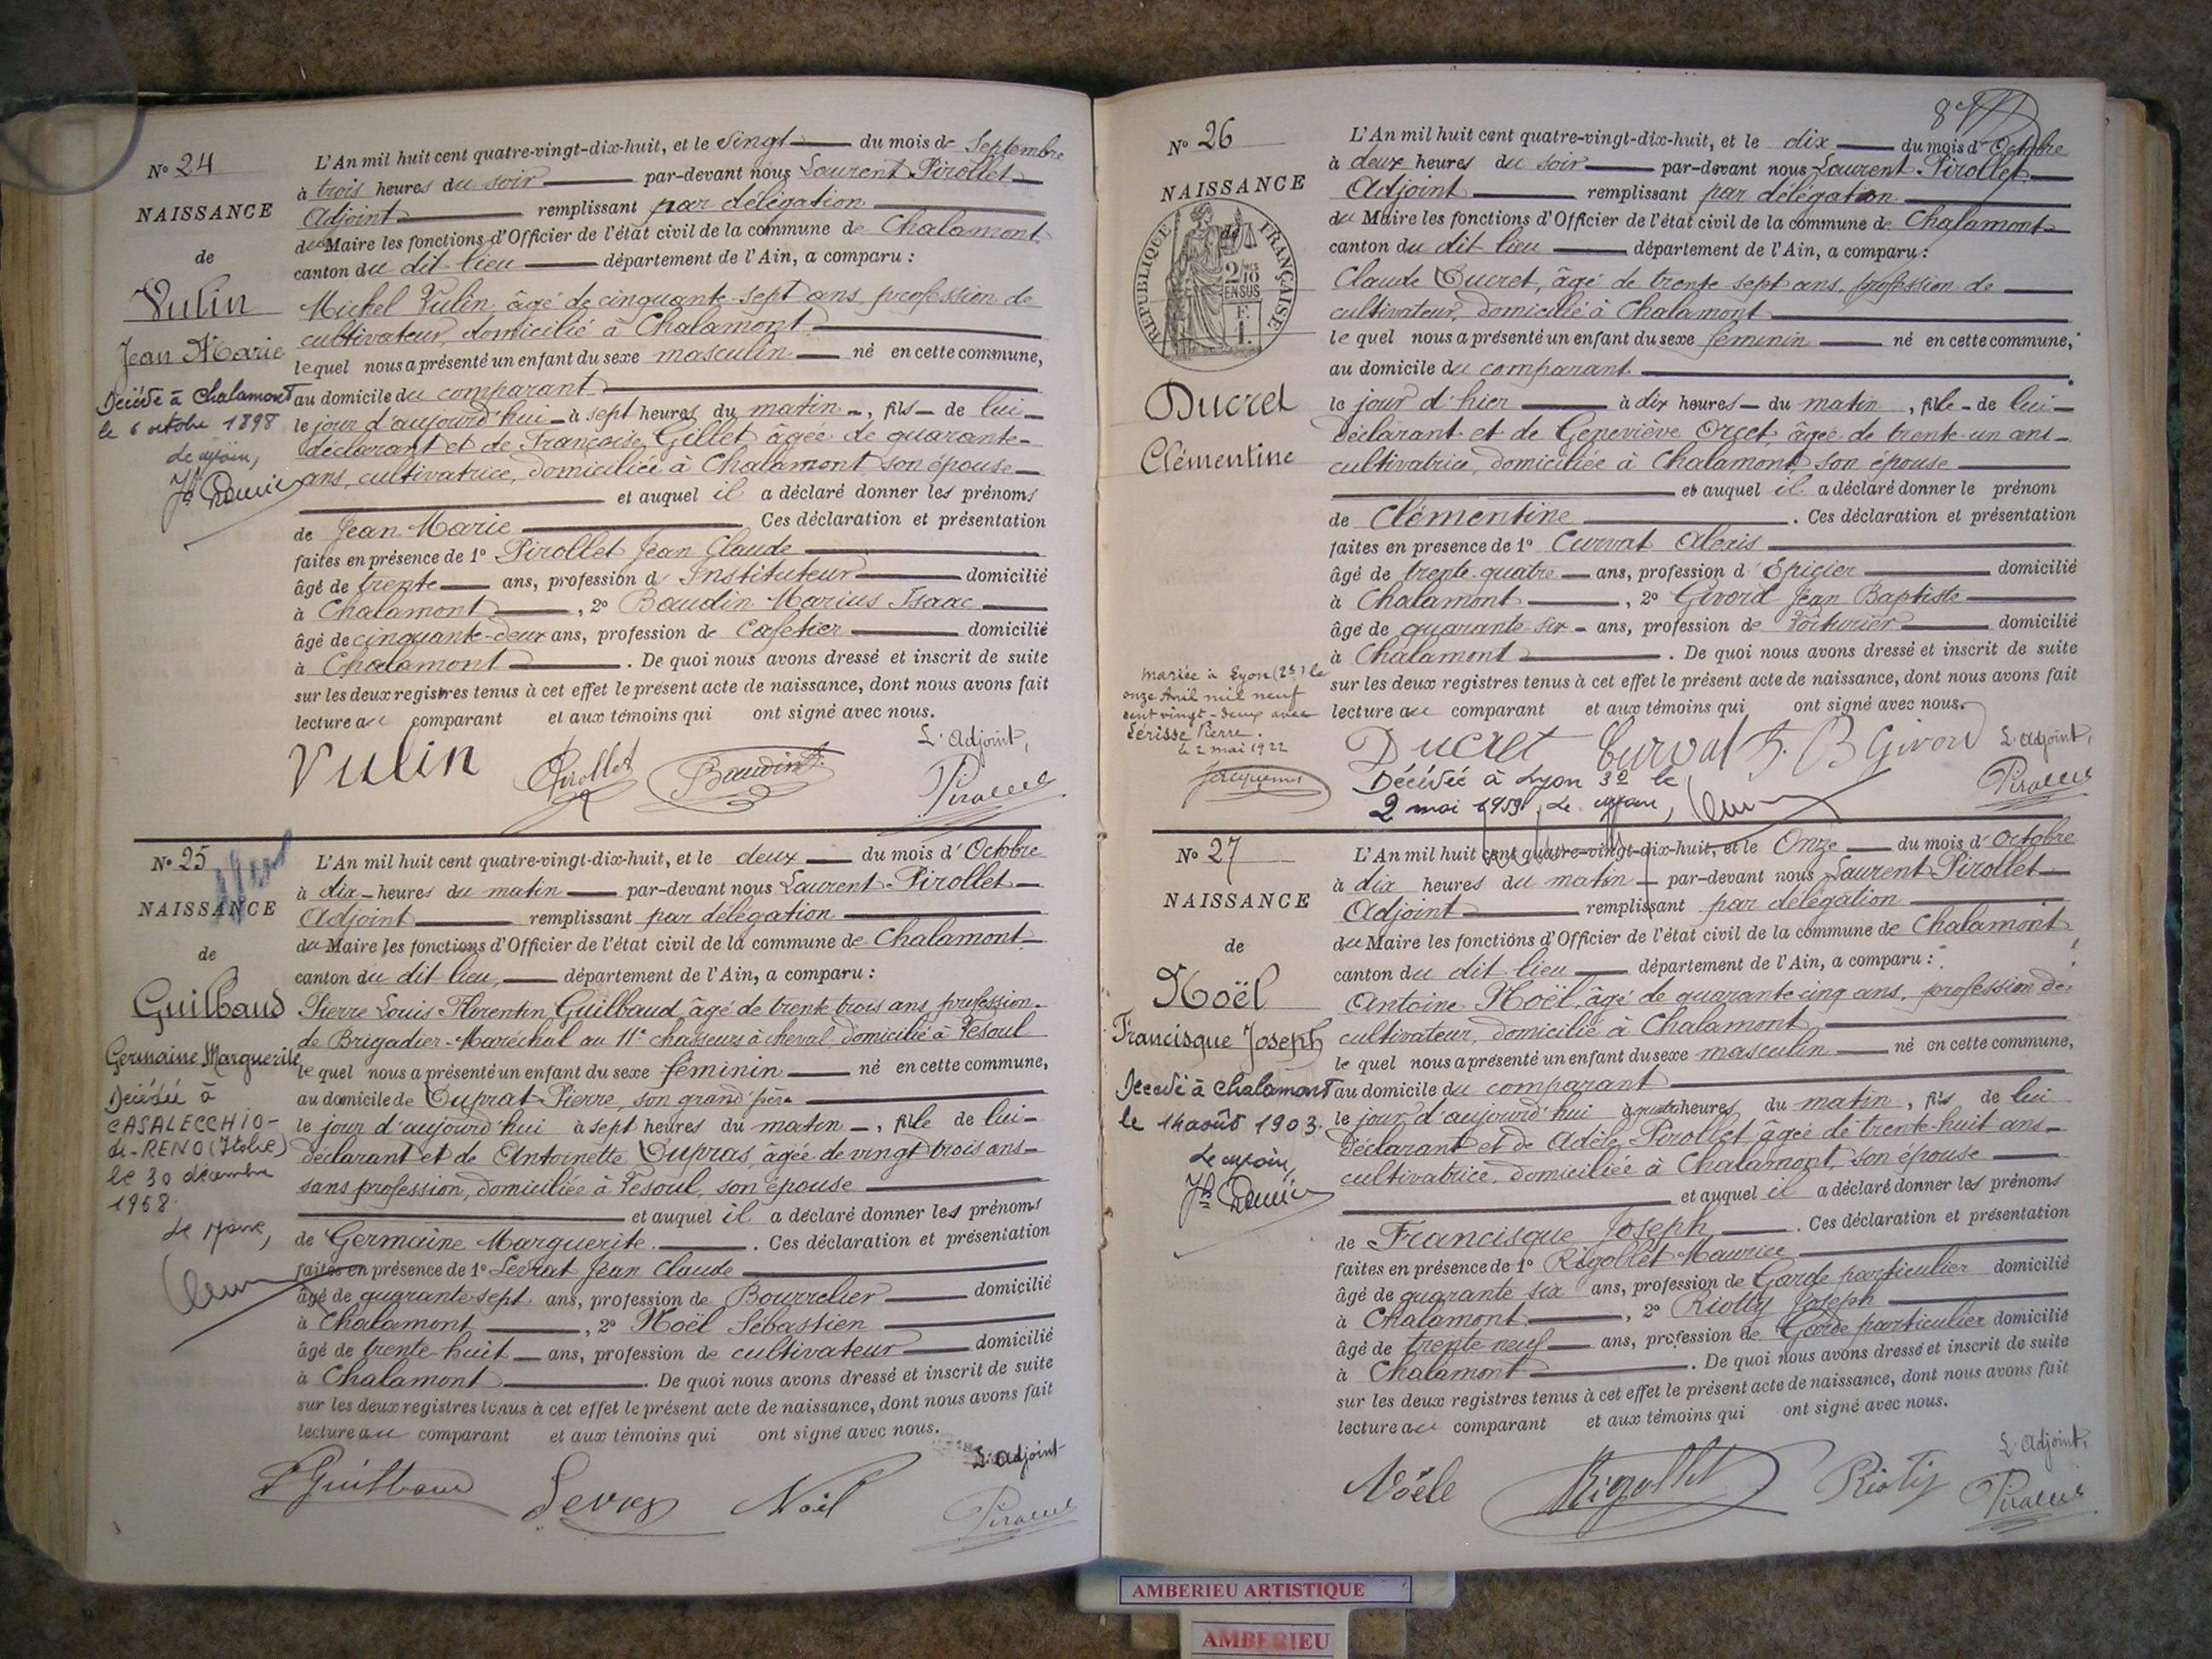 N° 24
NAISSANCE
de
Vulin
Jean Marie
Décédé à Chalamont
le 6 octobre 1898
L'An mil huit cent quatre-vingt-dix-huit, et le vingt du mois de Septembre
à trois heures du soir par-devant nous Laurent Pirollet
Adjoint remplissant par délégation
du Maire les fonctions d'Officier de l'état civil de la commune de Chalamont
canton du dit lieu département de l'Ain, a comparu :
Michel Vulin, âgé de cinquante-sept ans, profession de
cultivateur, domicilié à Chalamont
lequel nous a présenté un enfant du sexe masculin né en cette commune,
au domicile du comparant
le jour d'aujourd'hui à sept heures du matin, fils de lui
déclarant et de Françoise Gillet âgée de quarante-
ans, cultivatrice, domiciliée à Chalamont son épouse
et auquel il a déclaré donner les prénoms
de Jean Marie Ces déclaration et présentation
faites en présence de 1° Pirollet Jean Claude
âgé de trente ans, profession d'Instituteur domicilié
à Chalamont, 2° Baudin Marius Isaac
âgé de cinquante-deux ans, profession de Cafetier domicilié
à Chalamont. De quoi nous avons dressé et inscrit de suite
sur les deux registres tenus à cet effet le présent acte de naissance, dont nous avons fait
lecture au comparant et aux témoins qui ont signé avec nous.
L'Adjoint,
Vulin Pirollet Baudin Pirollet
N° 25
NAISSANCE
de
Guilbaud
Germaine Marguerite
Décédée à
CASALECCHIO-
di-RENO (Italie)
le 30 décembre
1958.
Le Maire,
L'An mil huit cent quatre-vingt-dix-huit, et le deux du mois d'Octobre
à dix heures du matin par-devant nous Laurent Pirollet
Adjoint remplissant par délégation
du Maire les fonctions d'Officier de l'état civil de la commune de Chalamont
canton du dit lieu, département de l'Ain, a comparu :
Pierre Louis Florentin Guilbaud âgé de trente trois ans profession
de Brigadier-Maréchal au 11e chasseurs à cheval, domicilié à Vesoul
le quel nous a présenté un enfant du sexe féminin né en cette commune,
au domicile de Duprat Pierre, son grand père
le jour d'aujourd'hui à sept heures du matin, fille de lui
déclarant et de Antoinette Dupras, âgée de vingt trois ans
sans profession, domiciliée à Vesoul, son épouse
et auquel il a déclaré donner les prénoms
de Germaine Marguerite. Ces déclaration et présentation
faites en présence de 1° Levrat Jean Claude
âgé de quarante-sept ans, profession de Bourrelier domicilié
à Chalamont, 2° Noël Sébastien
âgé de trente-huit ans, profession de cultivateur domicilié
à Chalamont. De quoi nous avons dressé et inscrit de suite
sur les deux registres tenus à cet effet le présent acte de naissance, dont nous avons fait
lecture au comparant et aux témoins qui ont signé avec nous.
L'Adjoint
Guilbaud Noël Pirollet
N° 26
NAISSANCE
de
RÉPUBLIQUE FRANÇAISE
2/10
EN SUS
F.
1.
Ducret
Clémentine
Mariée à Lyon (2e) le
onze Avril mil neuf
cent vingt-deux avec
Lérisse Pierre.
le 2 mai 1922
L'An mil huit cent quatre-vingt-dix-huit, et le dix du mois d'Octobre
à deux heures du soir par-devant nous Laurent Pirollet
Adjoint remplissant par délégation
du Maire les fonctions d'Officier de l'état civil de la commune de Chalamont
canton du dit lieu département de l'Ain, a comparu :
Claude Ducret, âgé de trente sept ans, profession de
cultivateur, domicilié à Chalamont
le quel nous a présenté un enfant du sexe féminin né en cette commune,
au domicile du comparant
le jour d'hier à dix heures du matin, fille de lui
déclarant et de Geneviève Orcet âgée de trente-un ans
cultivatrice, domiciliée à Chalamont, son épouse
et auquel il a déclaré donner le prénom
de Clémentine. Ces déclaration et présentation
faites en présence de 1° Curvat Alexis
âgé de trente-quatre ans, profession d'Epicier domicilié
à Chalamont, 2° Givord Jean Baptiste
âgé de quarante-six ans, profession de Voiturier domicilié
à Chalamont. De quoi nous avons dressé et inscrit de suite
sur les deux registres tenus à cet effet le présent acte de naissance, dont nous avons fait
lecture au comparant et aux témoins qui ont signé avec nous.
Ducret Curvat J. B Givord L'Adjoint,
Pirollet
Décédée à Lyon 3e le
2 mai 1959.
N° 27
NAISSANCE
de
Noël
Francisque Joseph
Décédé à Chalamont
le 14 août 1903.
L'An mil huit cent quatre-vingt-dix-huit, et le Onze du mois d'Octobre
à dix heures du matin par-devant nous Laurent Pirollet
Adjoint remplissant par délégation
du Maire les fonctions d'Officier de l'état civil de la commune de Chalamont
canton du dit lieu département de l'Ain, a comparu :
Antoine Noël, âgé de quarante cinq ans, profession de
cultivateur, domicilié à Chalamont
le quel nous a présenté un enfant du sexe masculin né en cette commune,
au domicile du comparant
le jour d'aujourd'hui à quatre heures du matin, fils de lui
déclarant et de Adèle Pirollet âgée de trente-huit ans
cultivatrice, domiciliée à Chalamont, son épouse
et auquel il a déclaré donner les prénoms
de Francisque Joseph. Ces déclaration et présentation
faites en présence de 1° Rigollet Maurice
âgé de quarante six ans, profession de Garde particulier domicilié
à Chalamont, 2° Riotty Joseph
âgé de trente neuf ans, profession de Garde particulier domicilié
à Chalamont. De quoi nous avons dressé et inscrit de suite
sur les deux registres tenus à cet effet le présent acte de naissance, dont nous avons fait
lecture au comparant et aux témoins qui ont signé avec nous.
L'Adjoint,
Noële Rigollet Pirollet
AMBERIEU ARTISTIQUE
AMBERIEU